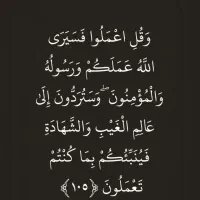 وَقُلِ اعْمَلُوا فَسَيَرَى
اللَّهُ عَمَلَكُمْ وَرَسُولُهُ
وَالْمُؤْمِنُونَ ۖ وَسَتُرَدُّونَ إِلَىٰ
عَالِمِ الْغَيْبِ وَالشَّهَادَةِ
فَيُنَبِّئُكُمْ بِمَا كُنْتُمْ
تَعْمَلُونَ ﴿١٠٥﴾